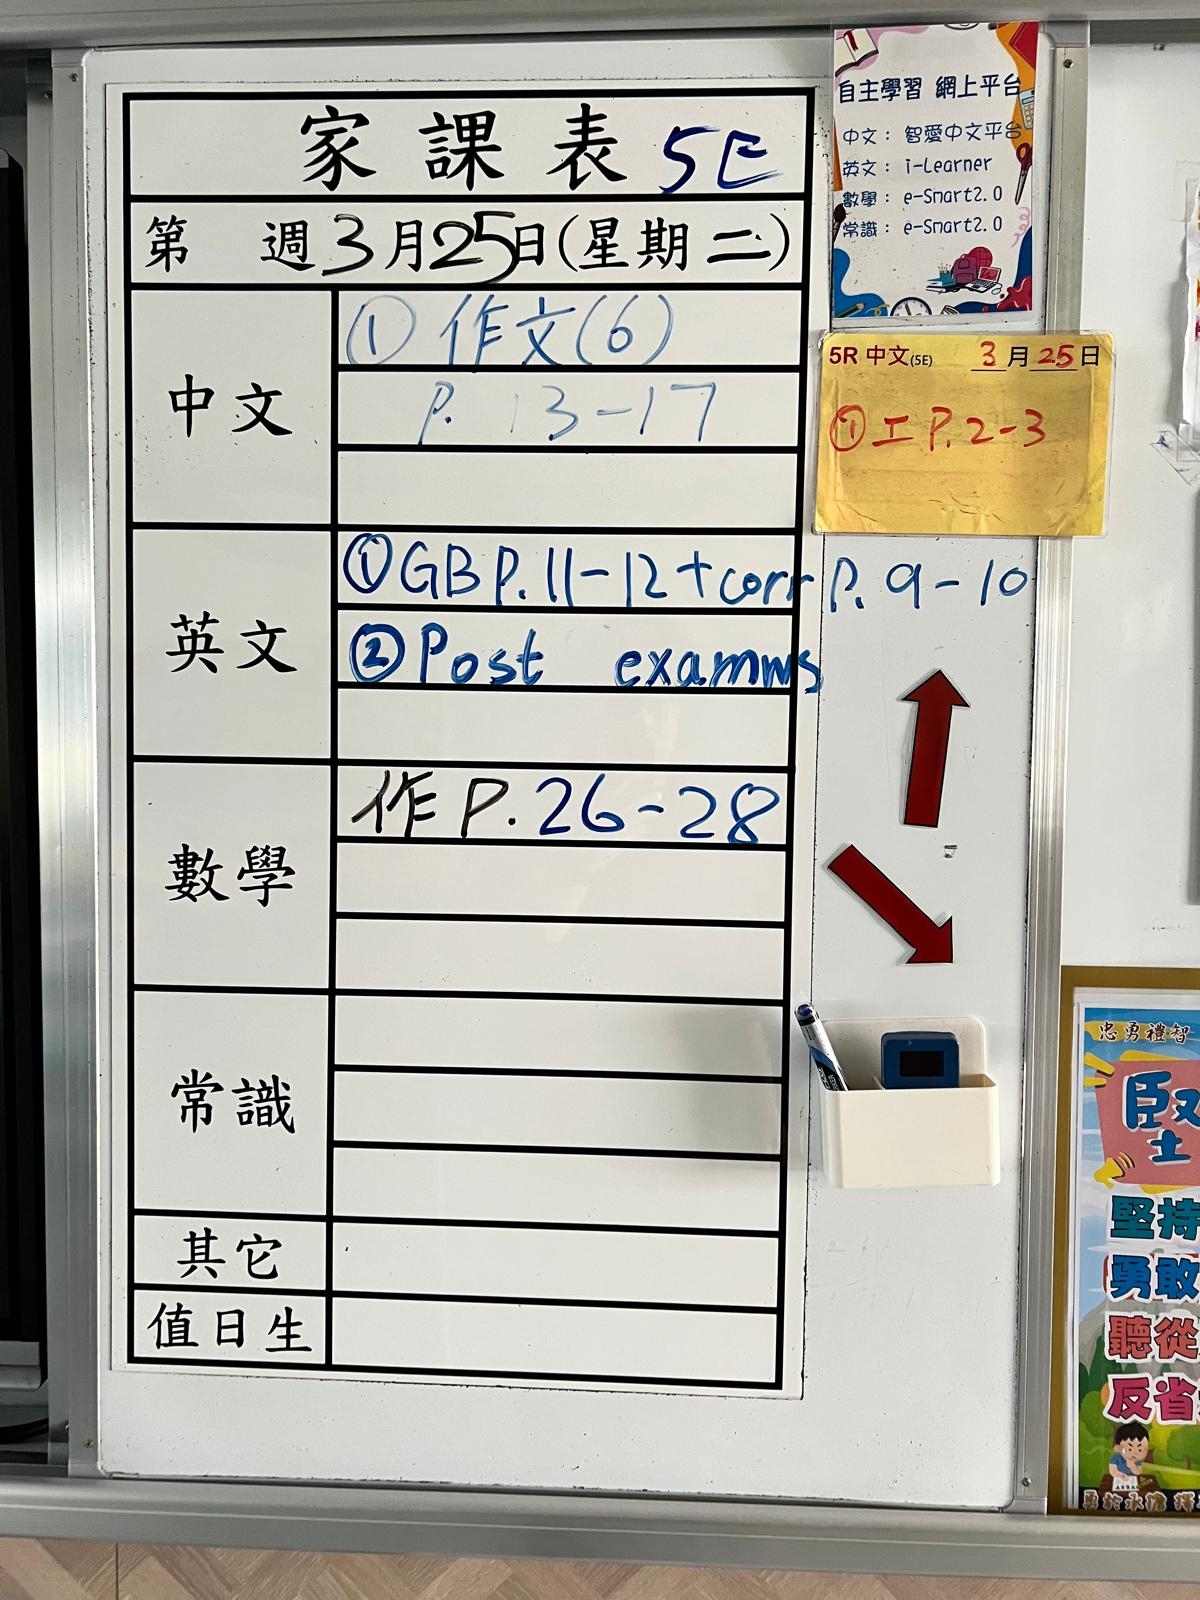 家課表 5E
第 週3月25日(星期二)
中文
① 作文(6)
P. 13-17
英文
① GB P. 11-12 + corr P. 9-10
② Post exam ws
數學
作 P. 26-28
常識
其它
值日生
自主學習 網上平台
中文： 智愛中文平台
英文： i-Learner
數學： e-Smart2.0
常識： e-Smart2.0
5R 中文(5E) 3月25日
① 工 P. 2-3
忠勇禮智
堅
堅持
勇敢
聽從
反省